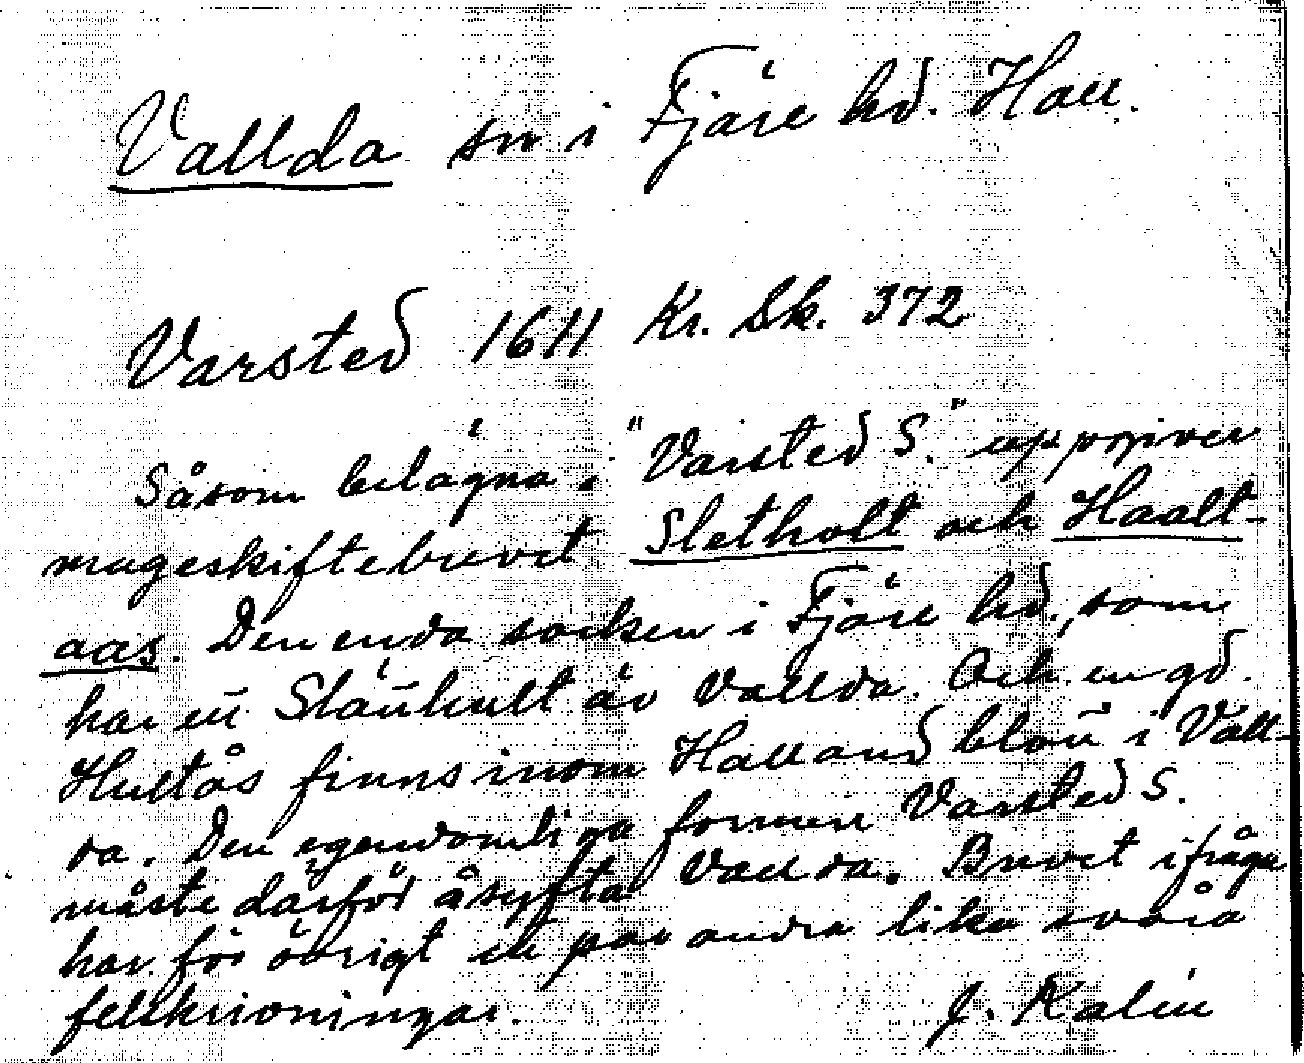 Vallda sn i Fjäre hd. Hall.
Varsted 1611 Kr. Sk. 372
Såsom belägna i "Varsted S." uppgiver
mageskiftebrevet Sletholt och Haalt-
aas. Den enda socken i Fjäre hd., som
har ett Slätthult är Vallda. Och en gd.
Hultås finns inom Halland blott i Vall-
da. Den egendomliga formen Varsted S.
måste därför åsyfta Vallda. Brevet ifråga
har för övrigt ett par andra lika svåra
felskrivningar. J. Kalén